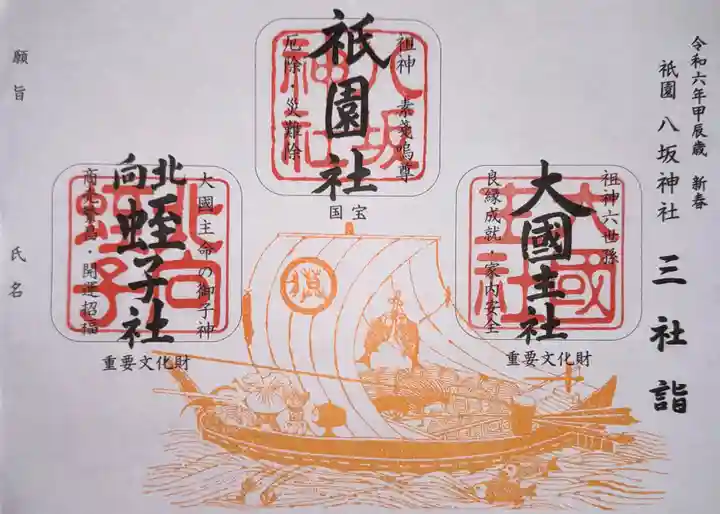 令和六年甲辰歳 新春
祇園 八坂神社 三社詣
祖神 素戔嗚尊
祇園社
厄除・災難除
八坂神社
国宝
祖神六世孫
大國主社
良縁成就・家内安全
大國主社
重要文化財
大國主命の御子神
北向蛭子社
商売繁昌・開運招福
北向蛭子
重要文化財
願旨
氏名